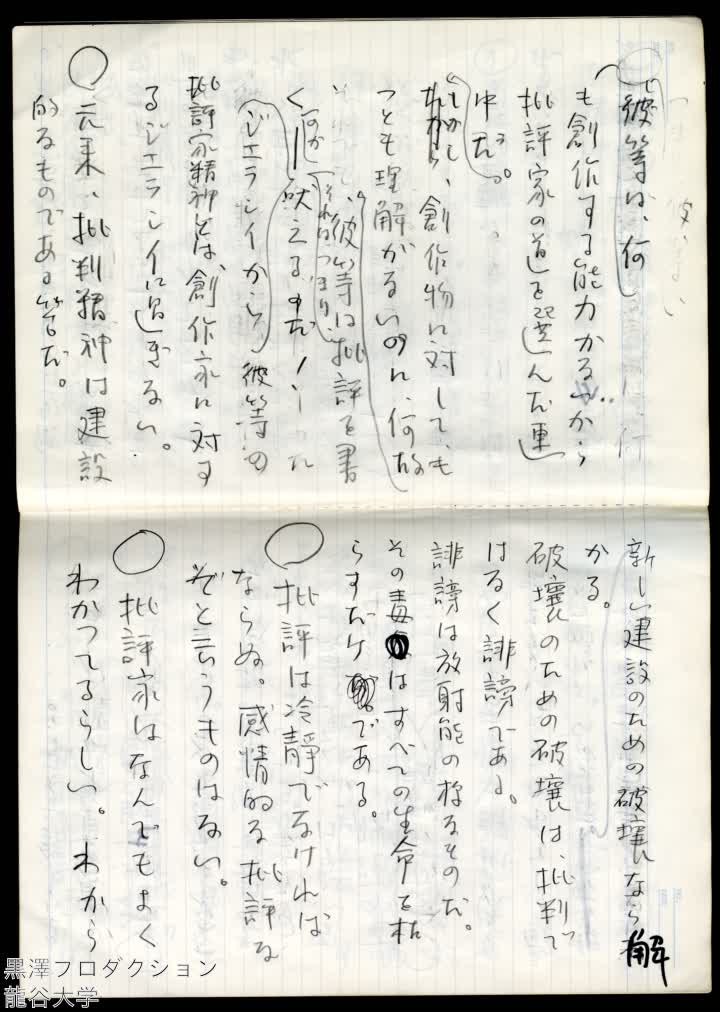 彼等は、何し
も創作する能力がないから
批評家の道を選んだ連
中だ。
しかし、創作物に対しても
つとも理解がないのに、何故
彼等は批評を書
く。何か
それはつまり、
吠える
ジェラシイから、彼等の
批評家精神とは、創作家に対す
るジェラシイに過ぎない。
◯元来、批判精神は建設
的なものである筈だ。
新しい建設のための破壊なら
解
かる。
破壊のための破壊は、批判で
はなく誹謗である。
誹謗は放射能の様なものだ。
その毒はすべての生命を枯
らすだけである。
◯批評は冷静でなければ
ならぬ。感情的な批評な
ぞと言うものはない。
◯批評家はなんでもよく
わかつてるらしい。わから
黒澤プロダクション
龍谷大学